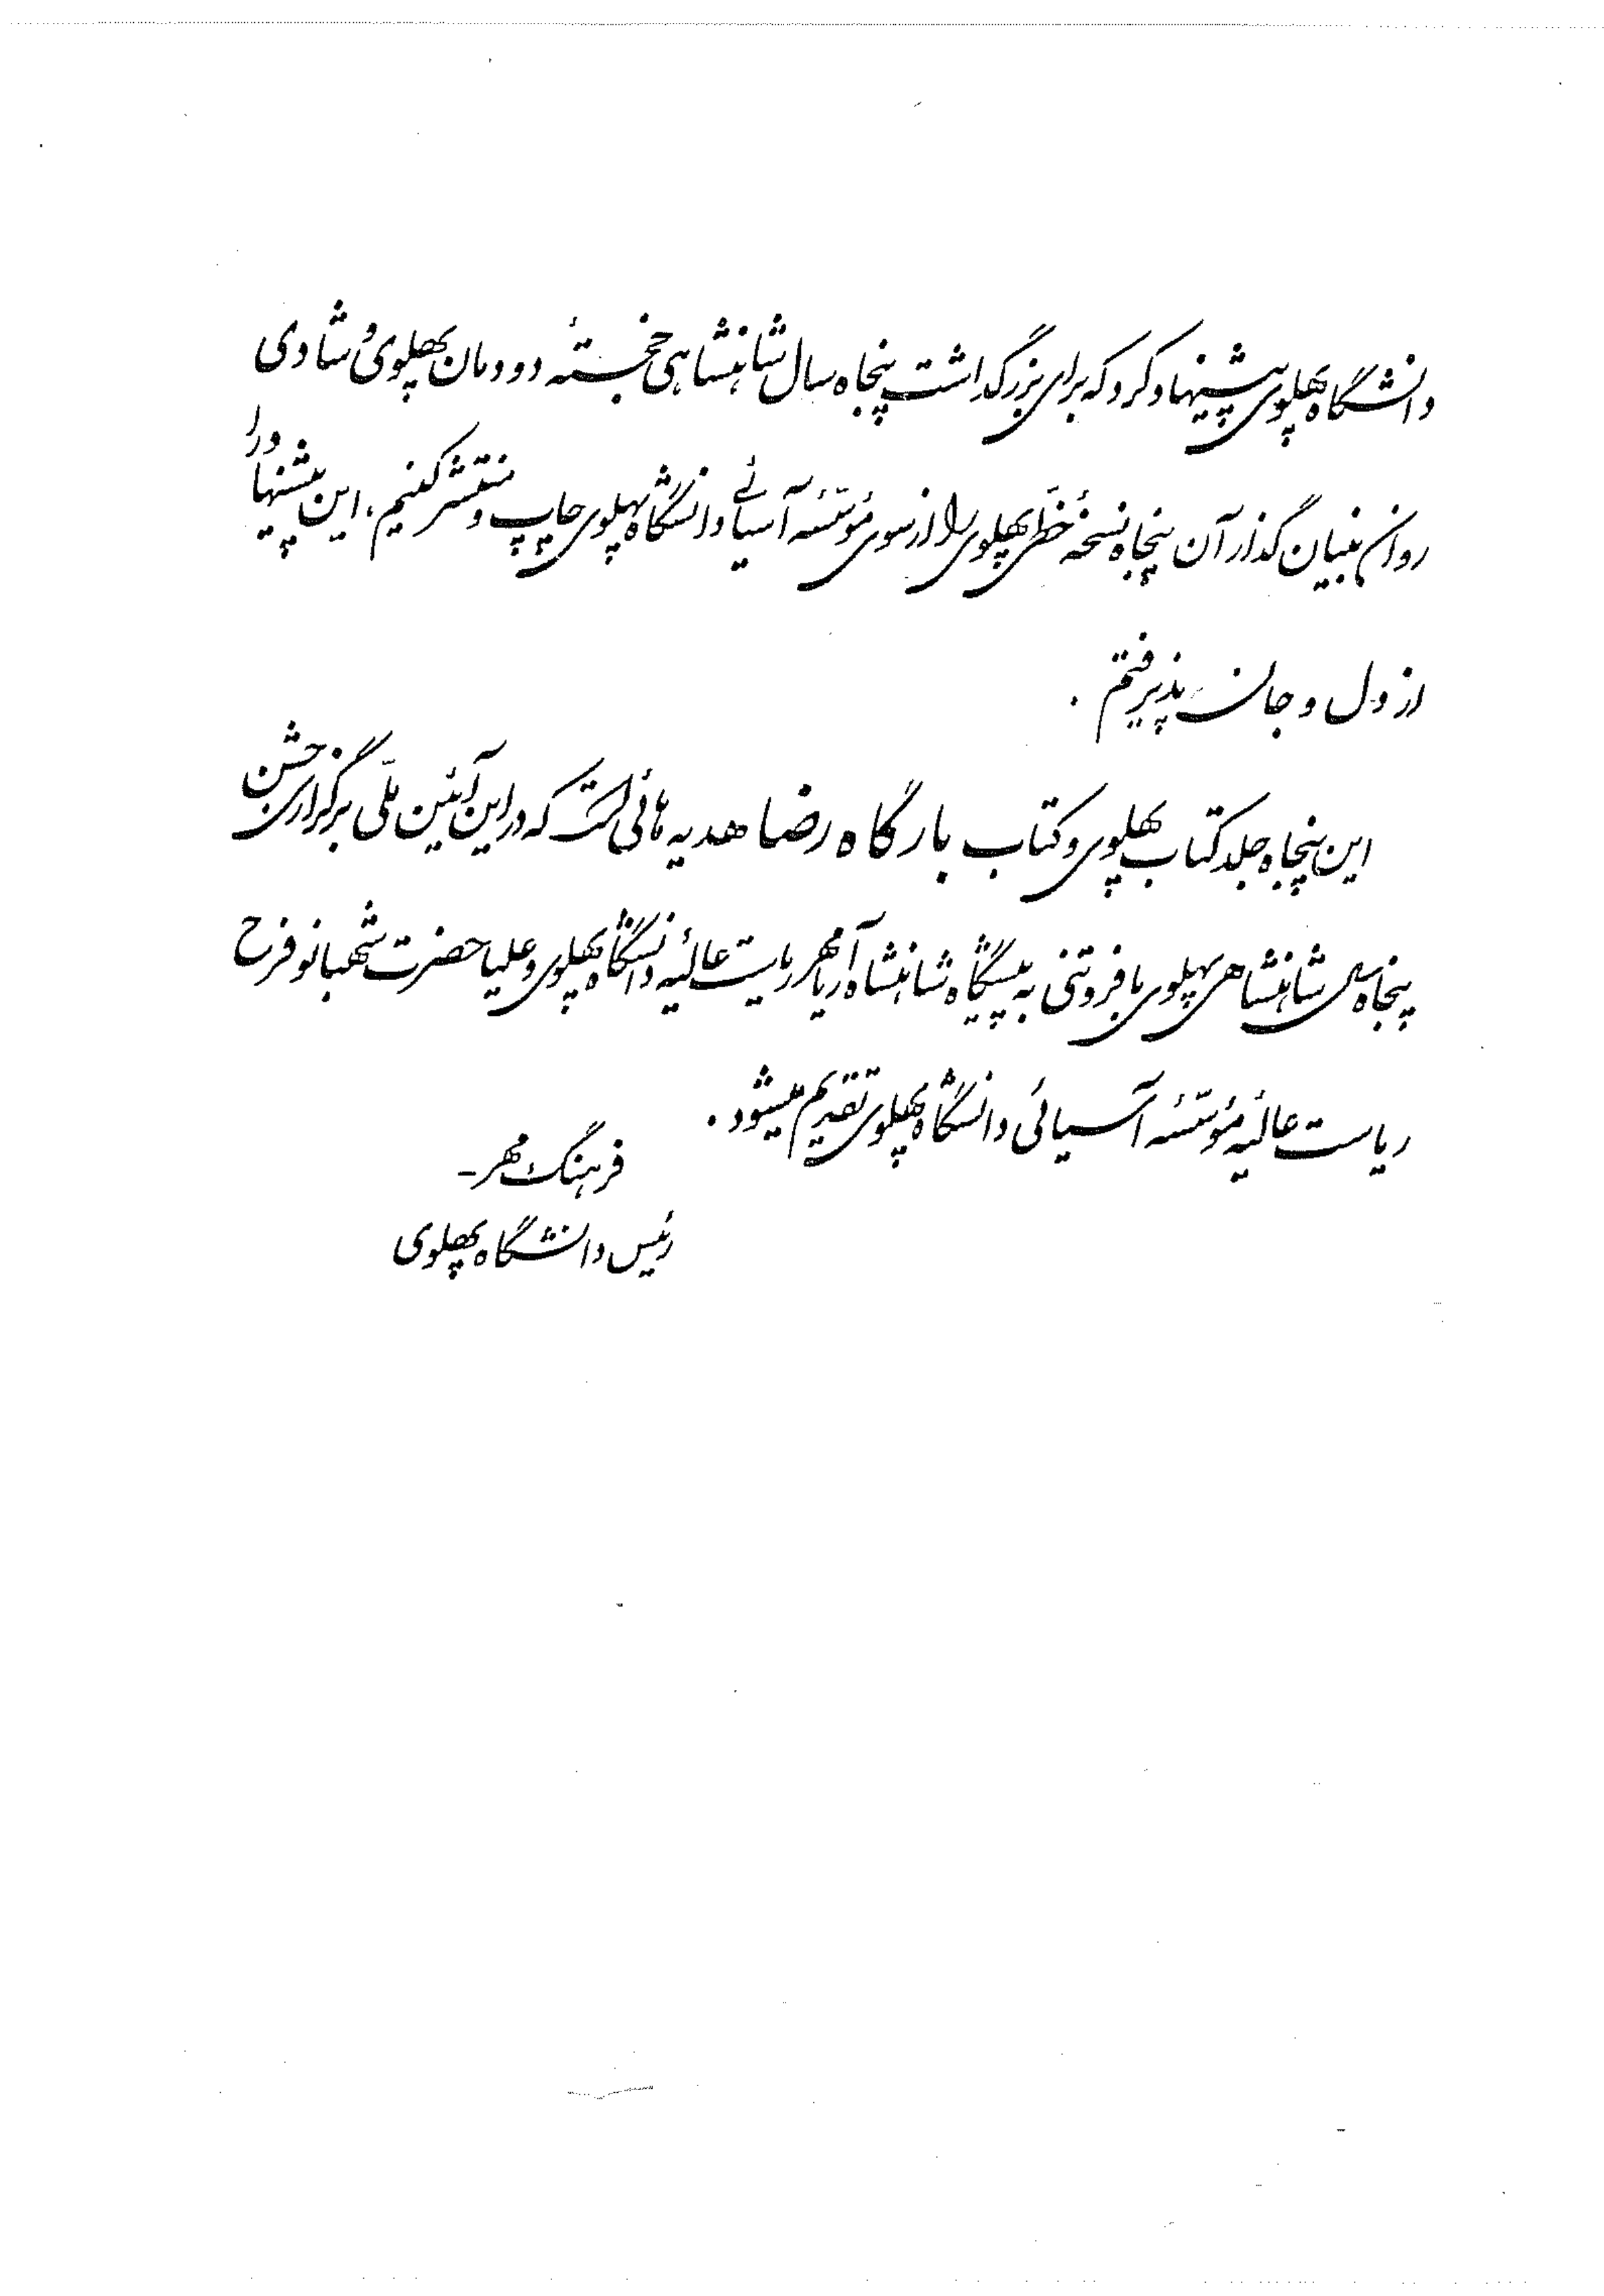 دانشگاه پهلوی پیشنهاد کرد که برای بزرگداشت پنجاه سال شاهنشاهی خجستهٔ دودمان پهلوی و شادی
روان بنیان گذار آن پنجاه نسخهٔ خطّی پهلوی را از سوی مؤسّسهٔ آسیائی دانشگاه پهلوی چاپ و منتشر کنیم، این پیشنهاد را
از دل و جان پذیرفتم .
این پنجاه جلد کتاب پهلوی و کتاب بارگاه رضا هدیه هائی است که در این آئین ملّی برگزاری جشن
پنجاه سال شاهنشاهی پهلوی با فروتنی به پیشگاه شاهنشاه آریامهر ریاست عالیه دانشگاه پهلوی و علیا حضرت شهبانو فرح
ریاست عالیه مؤسّسهٔ آسیائی دانشگاه پهلوی تقدیم میشود .
فرهنگ مهر -
رئیس دانشگاه پهلوی